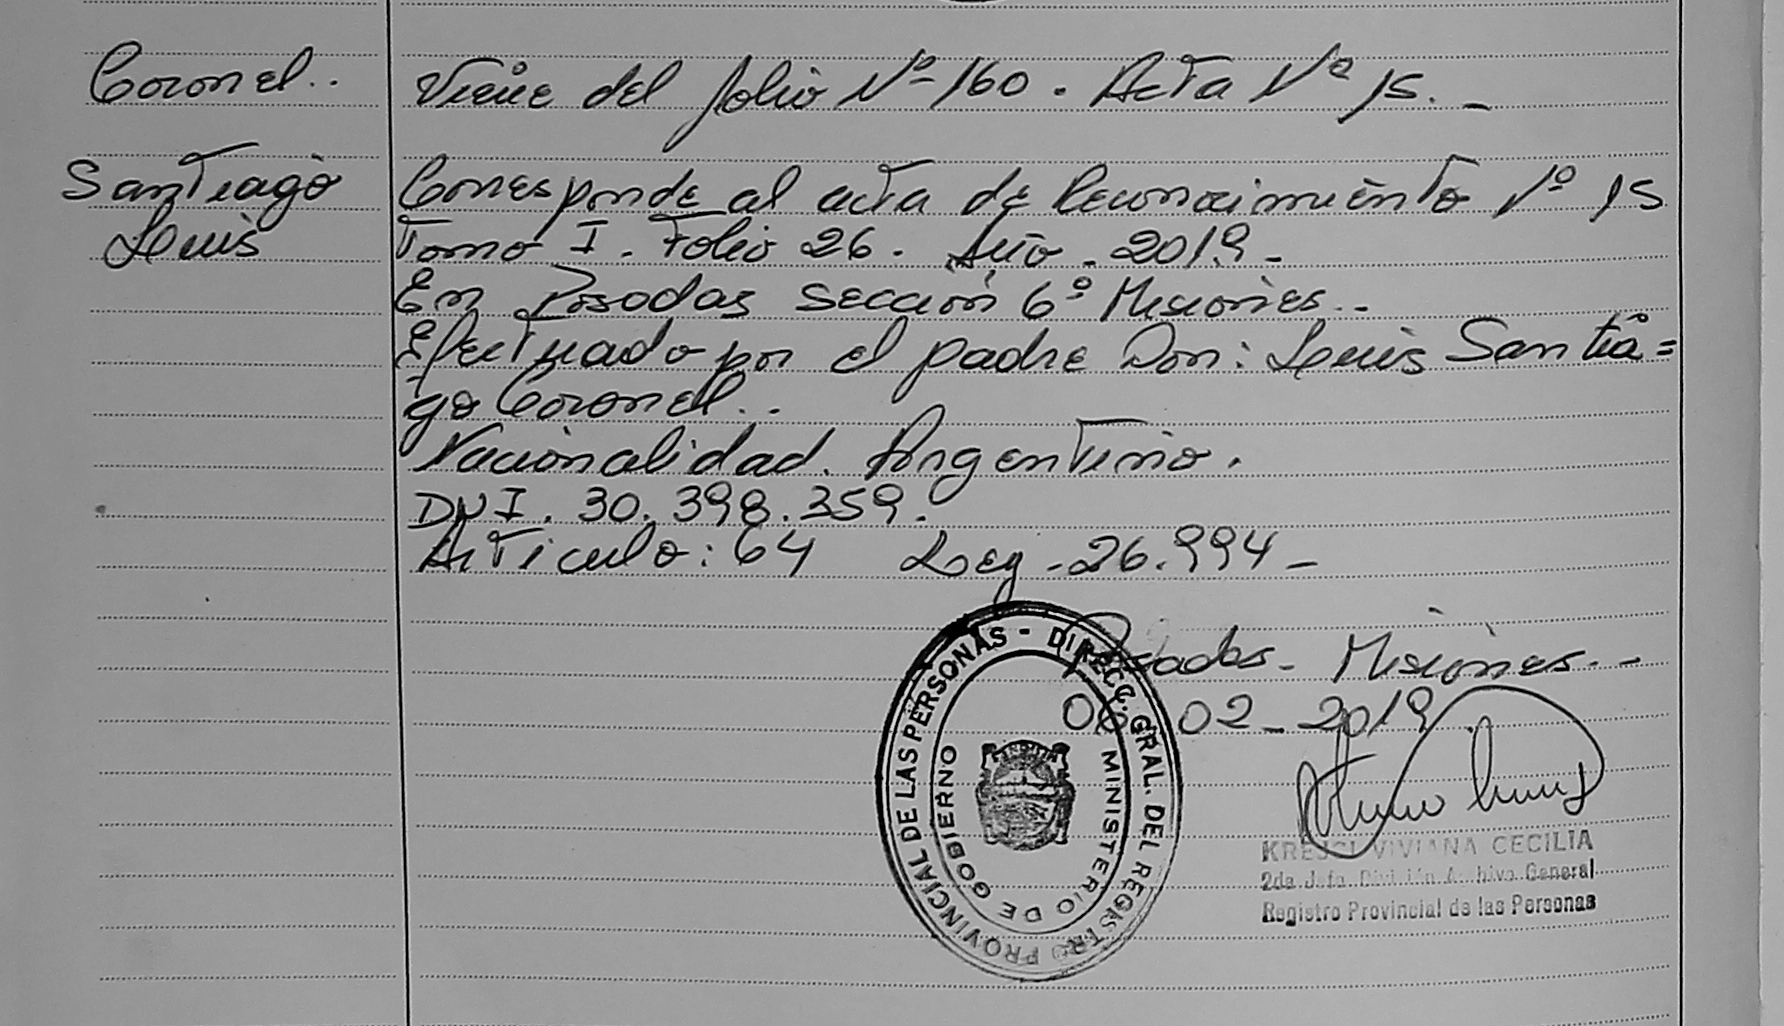 Coronel..
Santiago
Luis
Viene del folio Nº 160. Acta Nº 15. -
Corresponde al acta de Reconocimiento Nº 15
Tomo I. Folio 26. Año. 2019.-
En Posadas Sección 6º Misiones..
Efectuado por el padre Don: Luis Santia=
go Coronel..
Nacionalidad. Argentino.
DNI. 30.398.359.
Artículo: 64 Ley. 26.994-
Posadas- Misiones.-
06-02-2019.
REGISTRO PROVINCIAL DE LAS PERSONAS - DIRECC. GRAL. DEL
MINISTERIO DE GOBIERNO
KREJCI VIVIANA CECILIA
2da Jefa División Archivo General
Registro Provincial de las Personas